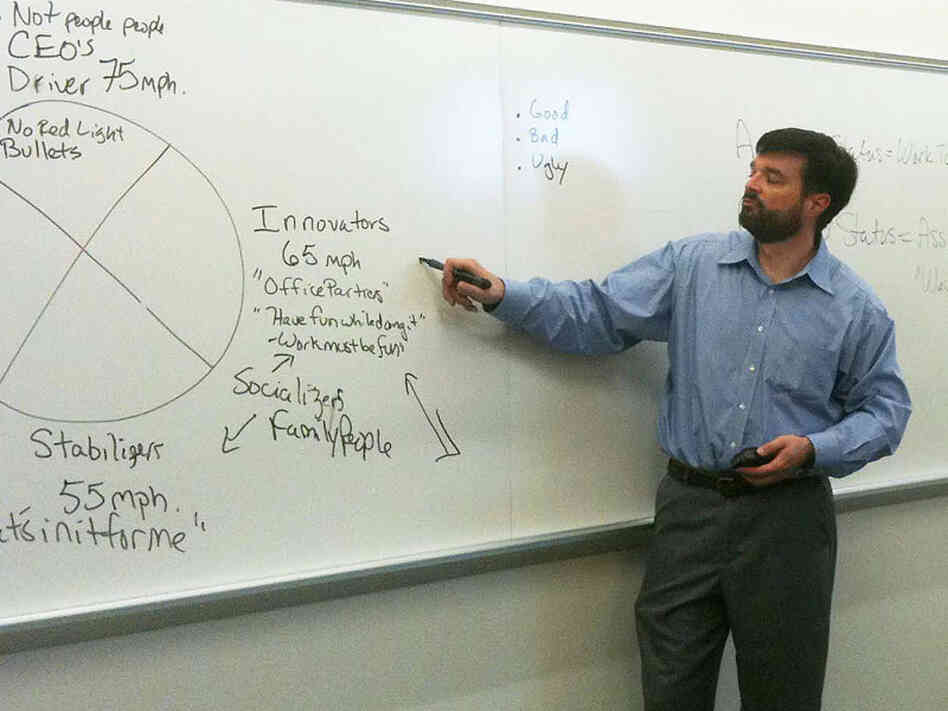 Not people people
CEO's
Driver 75mph.
No Red Light
Bullets
Innovators
65 mph
"Office Parties"
"Have fun while doing it"
-Work must be fun"
Socializers
Family People
Stabiligers
55 mph.
in it for me"
. Good
. Bad
. Ugly
= Work
Status =